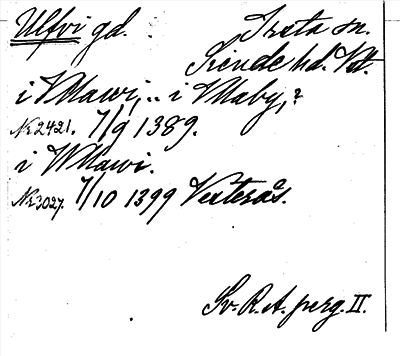 Ulfvi gd. Irsta sn.
Siende hd. Vstl.
i Vllawi, .. i Vllaby, ?
Nr 2421. 7/9 1389.
i Wllawi.
Nr 3027. 7/10 1399 Vesterås.
Sv. R. A. perg. II.